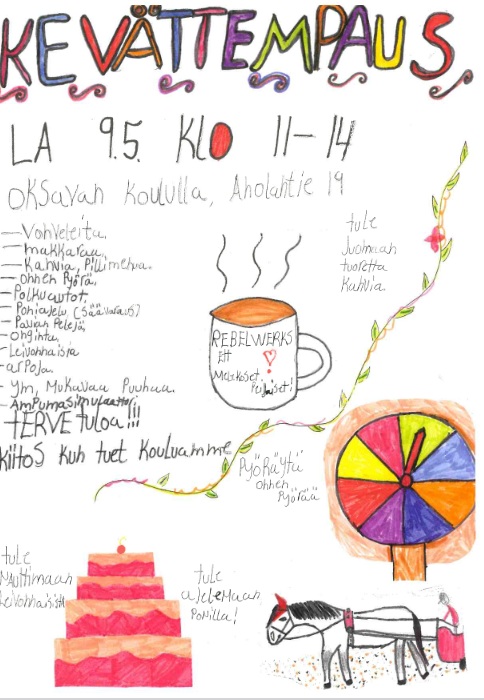 KEVÄTTEMPAUS
LA 9.5. KLO 11-14
Oksavan koululla, Aholantie 19
- Vohveleita
- makkaraa
- Kahvia, Pillimehua.
- onnen Pyörä.
- Polkuautot.
- Poniajelu (Säävaraus)
- Pelejä
- ongintaa
- Leivonnaisia
- arpoja
- ym, Mukavaa Puuhaa.
- Ampumasimulaattori
TERVEtuloa!!!
kiitos kun tuet kouluamme
tule
Juomaan
tuoretta
Kahvia.
REBELWERKS
Ett
Pyöräytä
onnen
Pyörää
tule
Nauttimaan
Leivonnaisista
tule
ajelemaan
Ponilla!